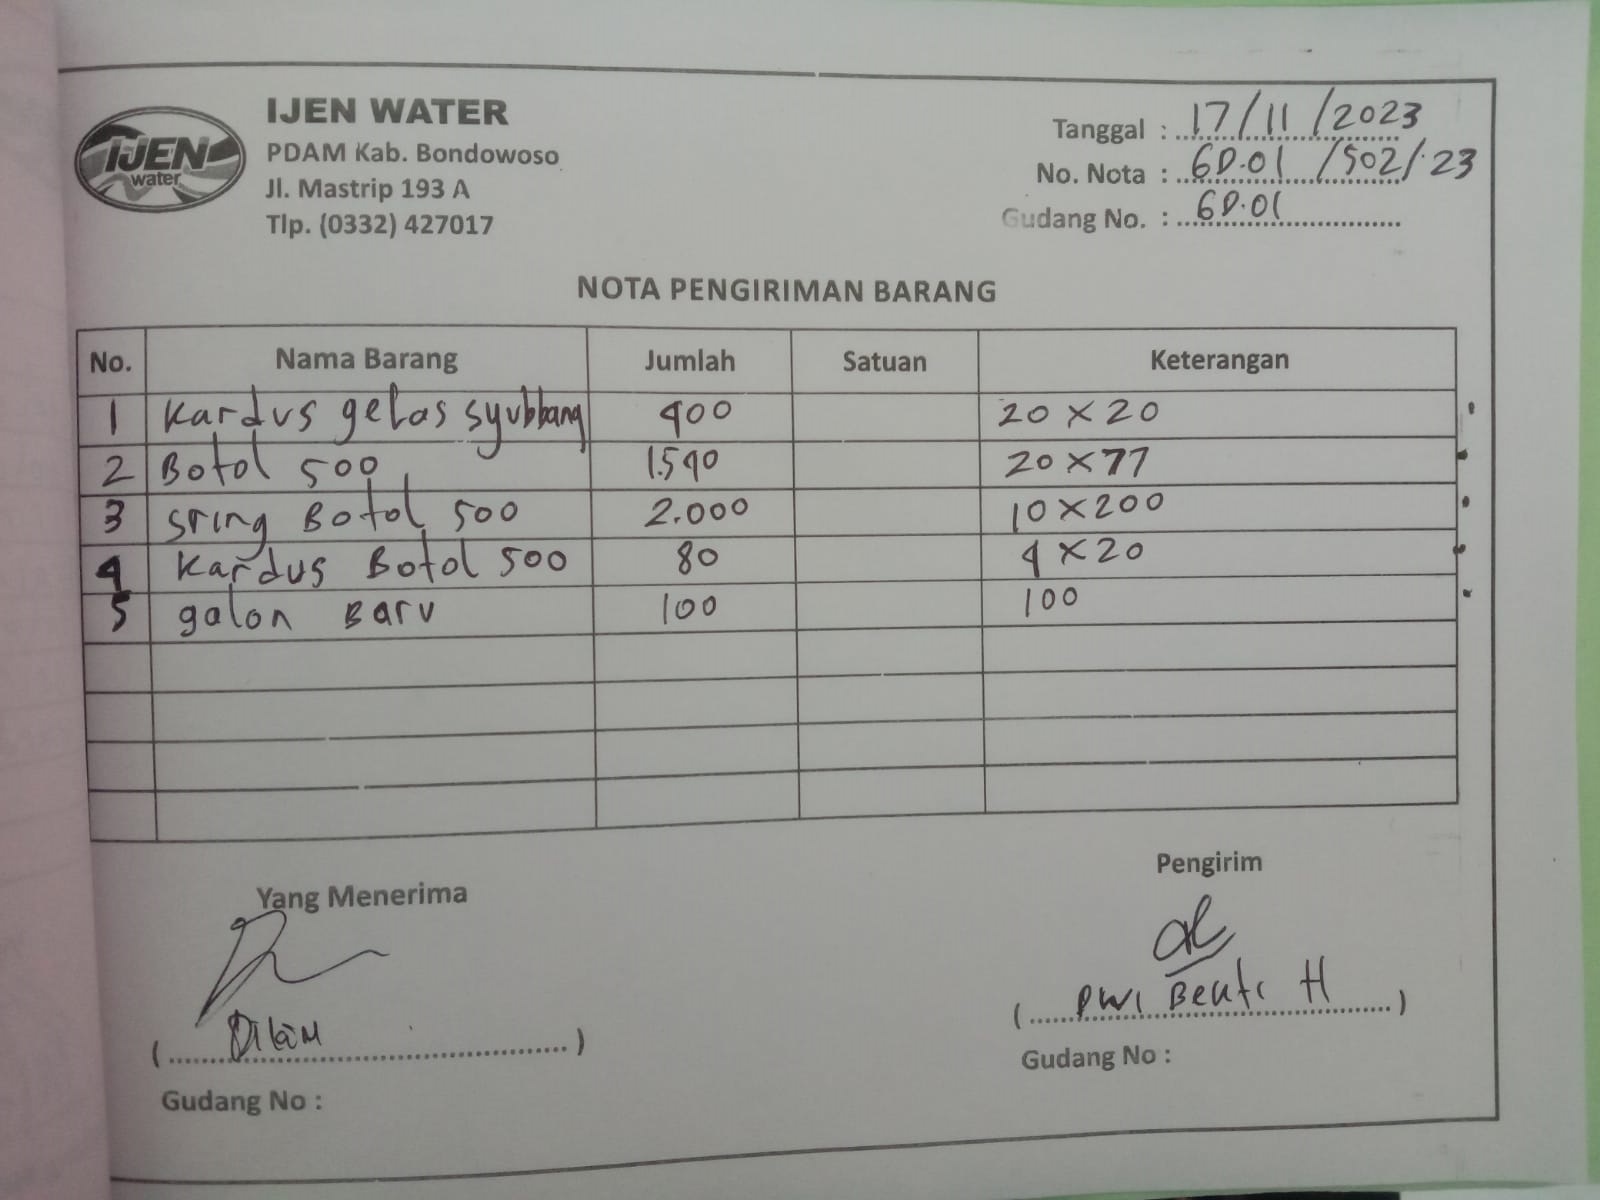 IJEN
water
IJEN WATER
PDAM Kab. Bondowoso
Jl. Mastrip 193 A
Tlp. (0332) 427017
Tanggal : 17/11/2023
No. Nota : GD.01 /502/23
Gudang No. : GD.01
NOTA PENGIRIMAN BARANG
No. Nama Barang Jumlah Satuan Keterangan
1 Kardus gelas syubbang 400 20 x 20
2 Botol 500 1.540 20 x 77
3 Sring Botol 500 2.000 10 x 200
4 Kardus Botol 500 80 4 x 20
5 galon Baru 100 100
Yang Menerima
Pengirim
( )
( Dwi H )
Gudang No :
Gudang No :